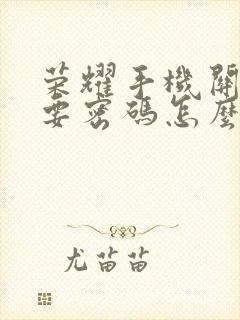 荣耀手機開
要密碼怎麼
尤苗苗